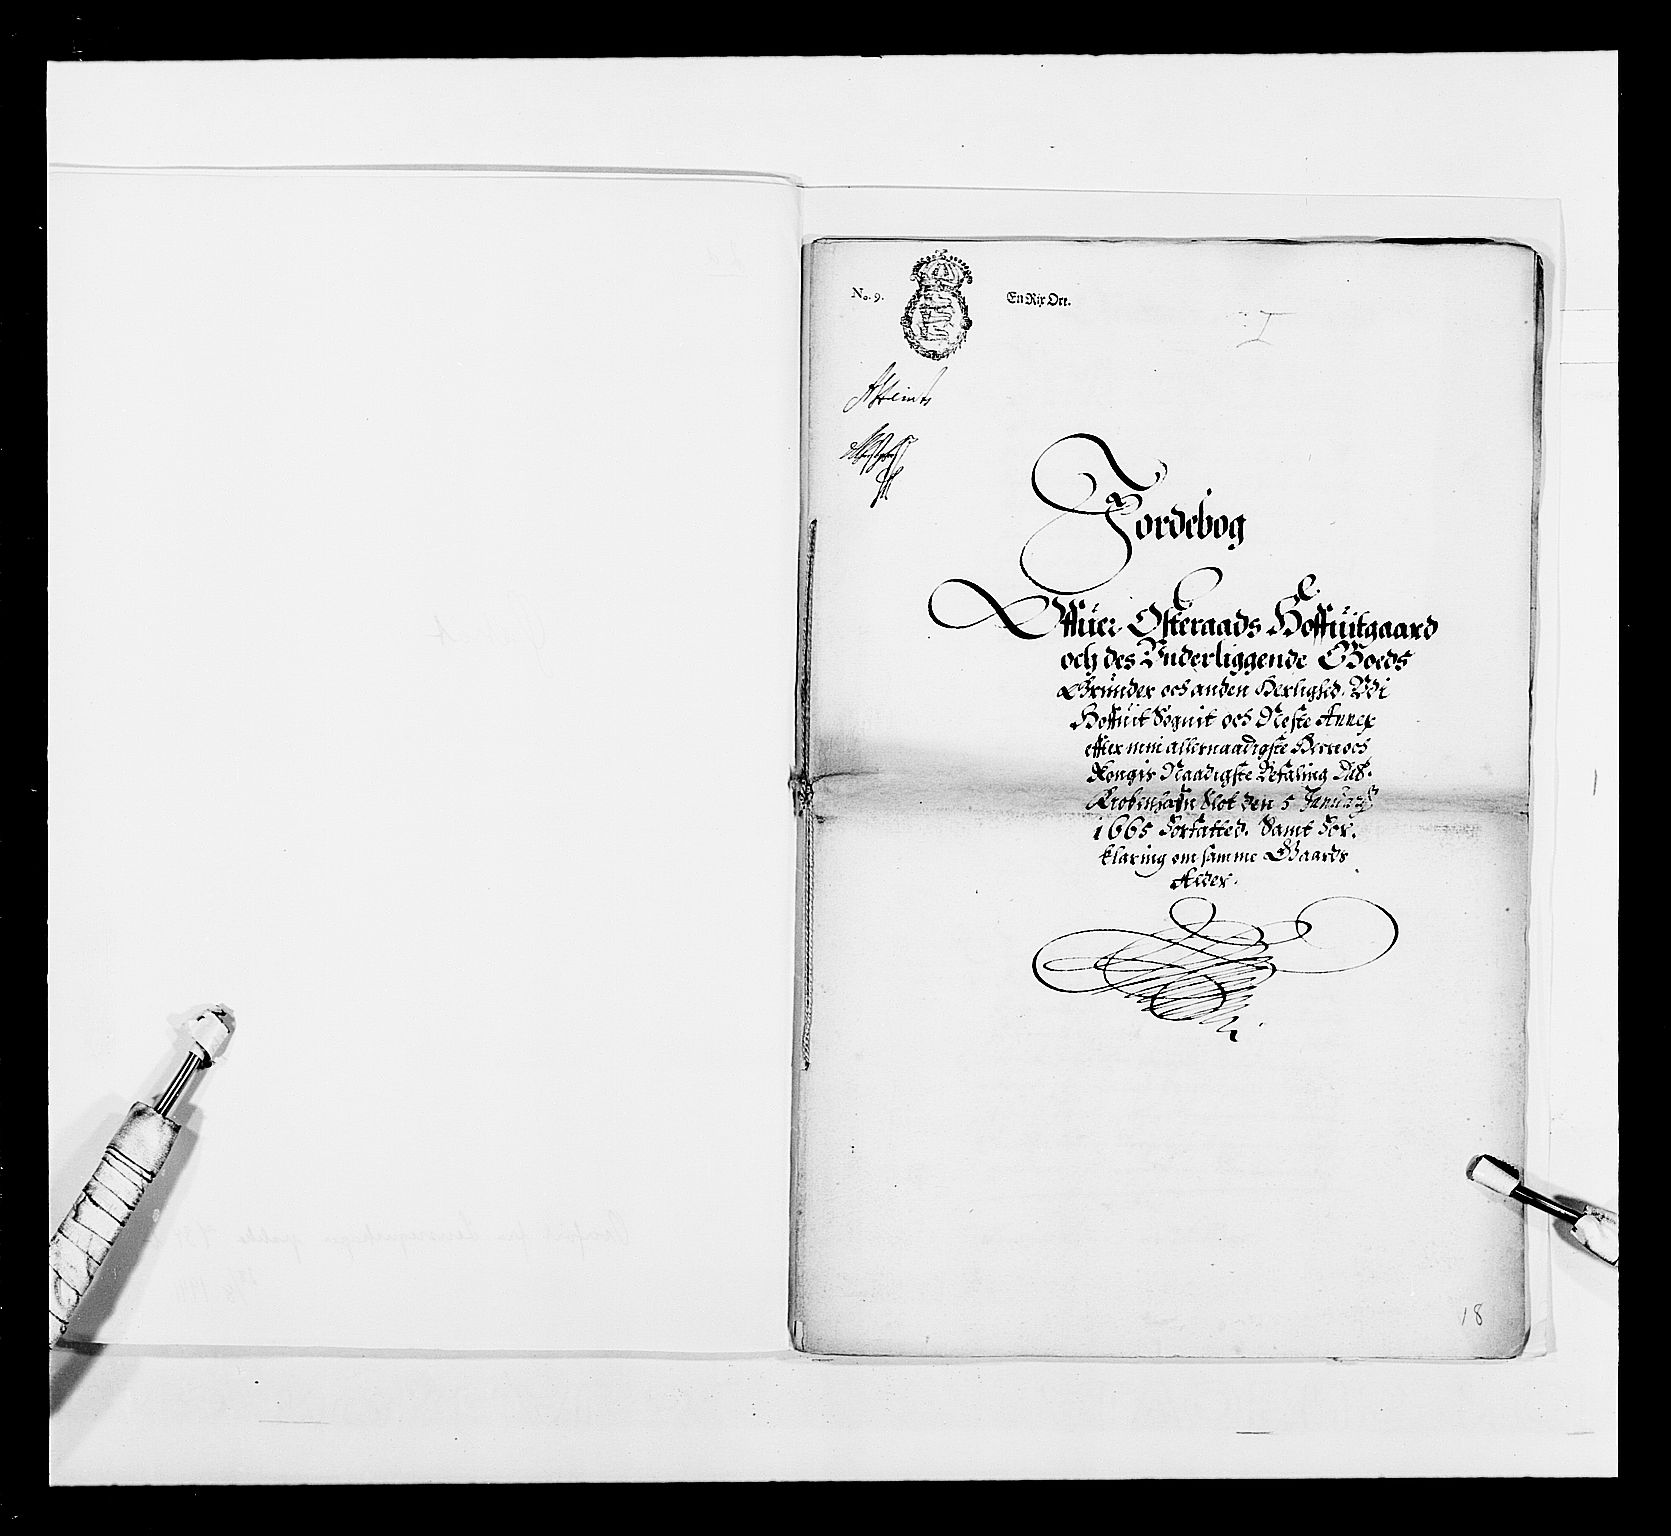 No. 9.
En Rix Ort.
Jordebog
Offuer Osteraads Hoffuitgaard
och des Underliggende Goeds
Grunder och anden Herlighed. Udi
Hoffuit Sognit och Neste Annex
effter min allernaadigste Herre och
Kongis Naadigste Befaling Dat.
Kiobinhafn Slot den 5 Januarij
1665 Forfatted. Samt For,
klaring om samme Gaards
Alder.
18